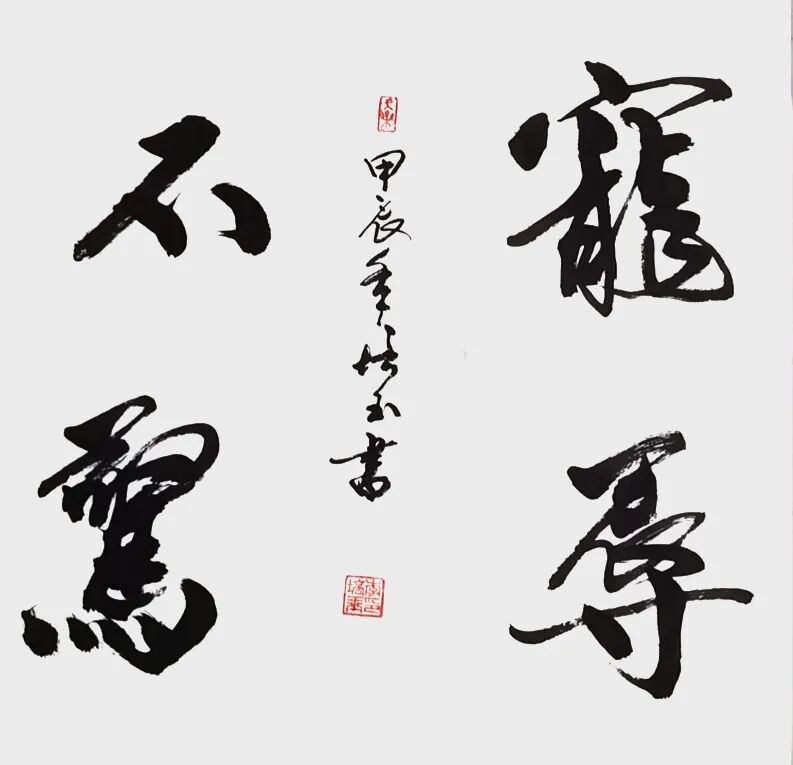 寵辱
不驚
甲辰年培玉書